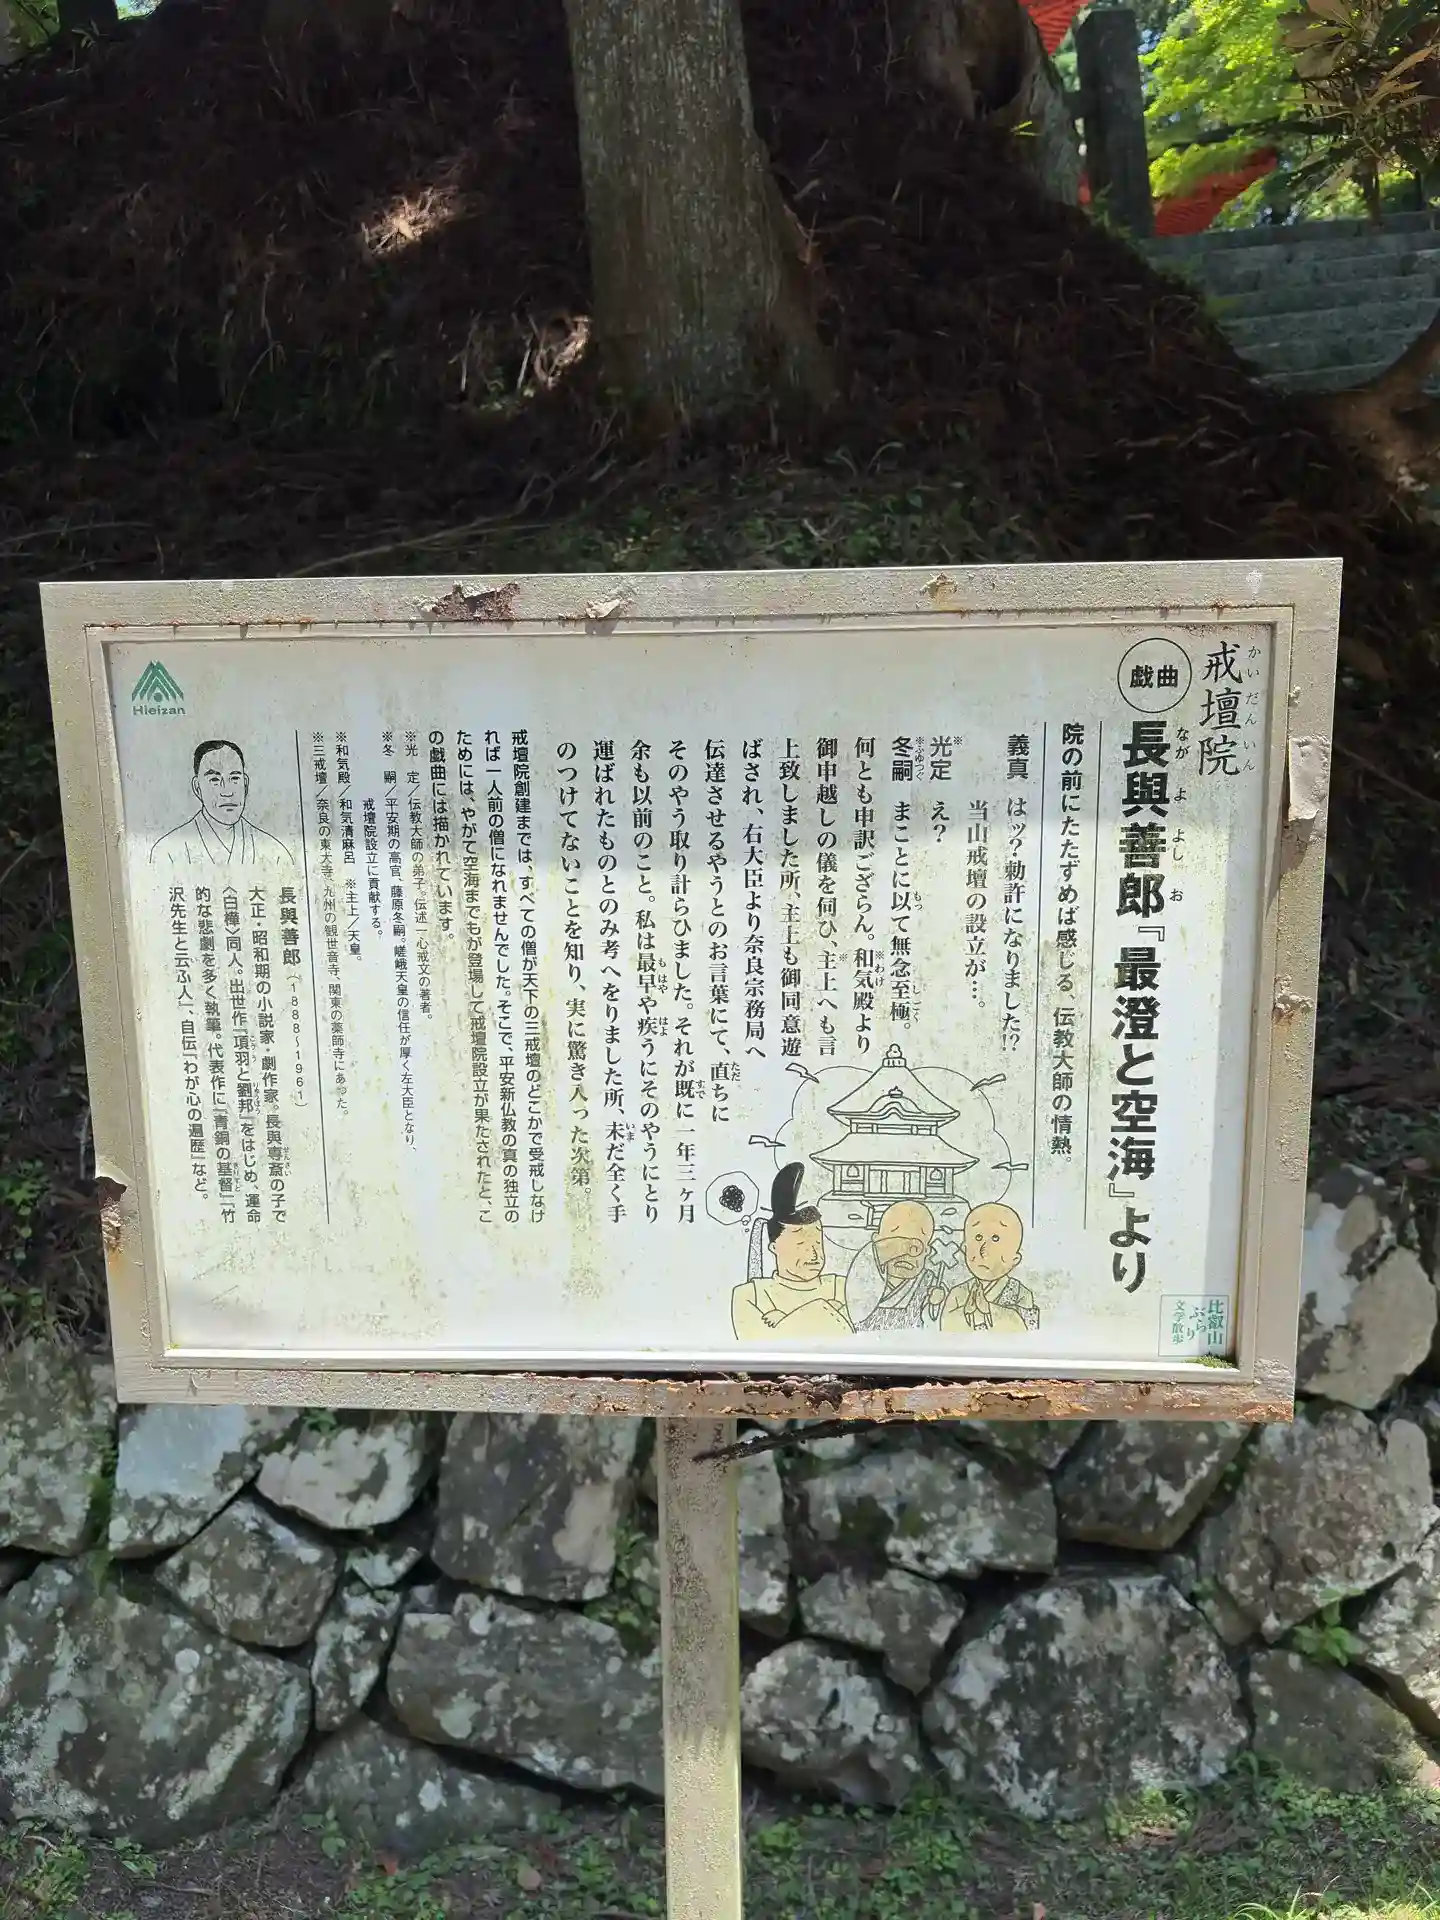 戒壇院
かいだんいん
戯曲
長與善郎『最澄と空海』より
ながよよしお
院の前にたたずめば感じる、伝教大師の情熱。
義真 はッ？勅許になりました!?
当山戒壇の設立が…。
光定※ え？
冬嗣※ まことに以て無念至極。
ふゆつぐ もつ しごく
何とも申訳ござらん。和気殿※より
わけ
御申越しの儀を伺ひ、主上※へも言
上致しました所、主上も御同意遊
ばされ、右大臣より奈良宗務局へ
伝達させるやうとのお言葉にて、直ちに
ただ
そのやう取り計らひました。それが既に一年三ヶ月
すで
余も以前のこと。私は最早や疾うにそのやうにとり
もはや はよ
運ばれたものとのみ考へをりました所、未だ全く手
いま
のつけてないことを知り、実に驚き入った次第。
戒壇院創建までは、すべての僧が天下の三戒壇のどこかで受戒しなけ
れば一人前の僧になれませんでした。そこで、平安新仏教の真の独立の
ためには、やがて空海までもが登場して戒壇院設立が果たされたと、こ
の戯曲には描かれています。
※光 定／伝教大師の弟子。伝述一心戒文の著者。
※冬 嗣／平安期の高官、藤原冬嗣。嵯峨天皇の信任が厚く左大臣となり、
戒壇院設立に貢献する。
※和気殿／和気清麻呂 ※主上／天皇。
※三戒壇／奈良の東大寺、九州の観世音寺、関東の薬師寺にあった。
長與善郎（1888〜1961）
大正・昭和期の小説家・劇作家。長與専斎の子で
せんさい
〈白樺〉同人。出世作『項羽と劉邦』をはじめ、運命
こうう りゅうほう
的な悲劇を多く執筆。代表作に『青銅の基督』『竹
きりすと
沢先生と云ふ人』、自伝『わが心の遍歴』など。
Hieizan
比叡山
ぶらり
文学散歩